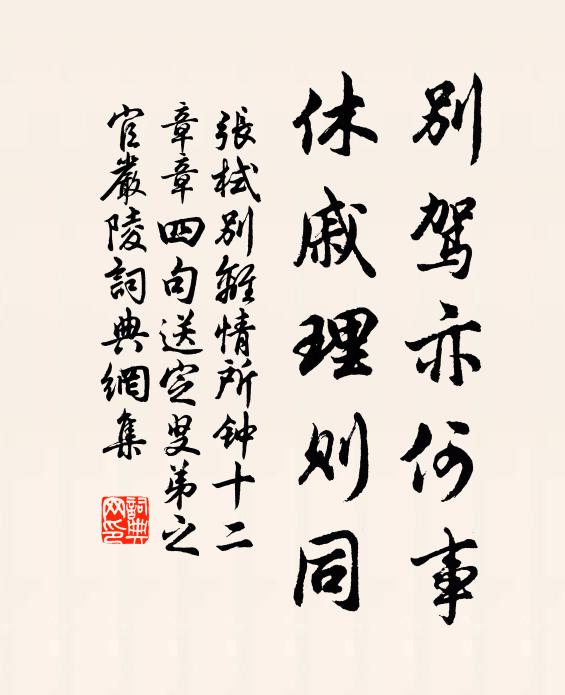 别驾亦何事
休戚理则同
張栻别離情所钟十二
章章四句送定叟弟之
官嚴陵詞典網集
詞典
网印